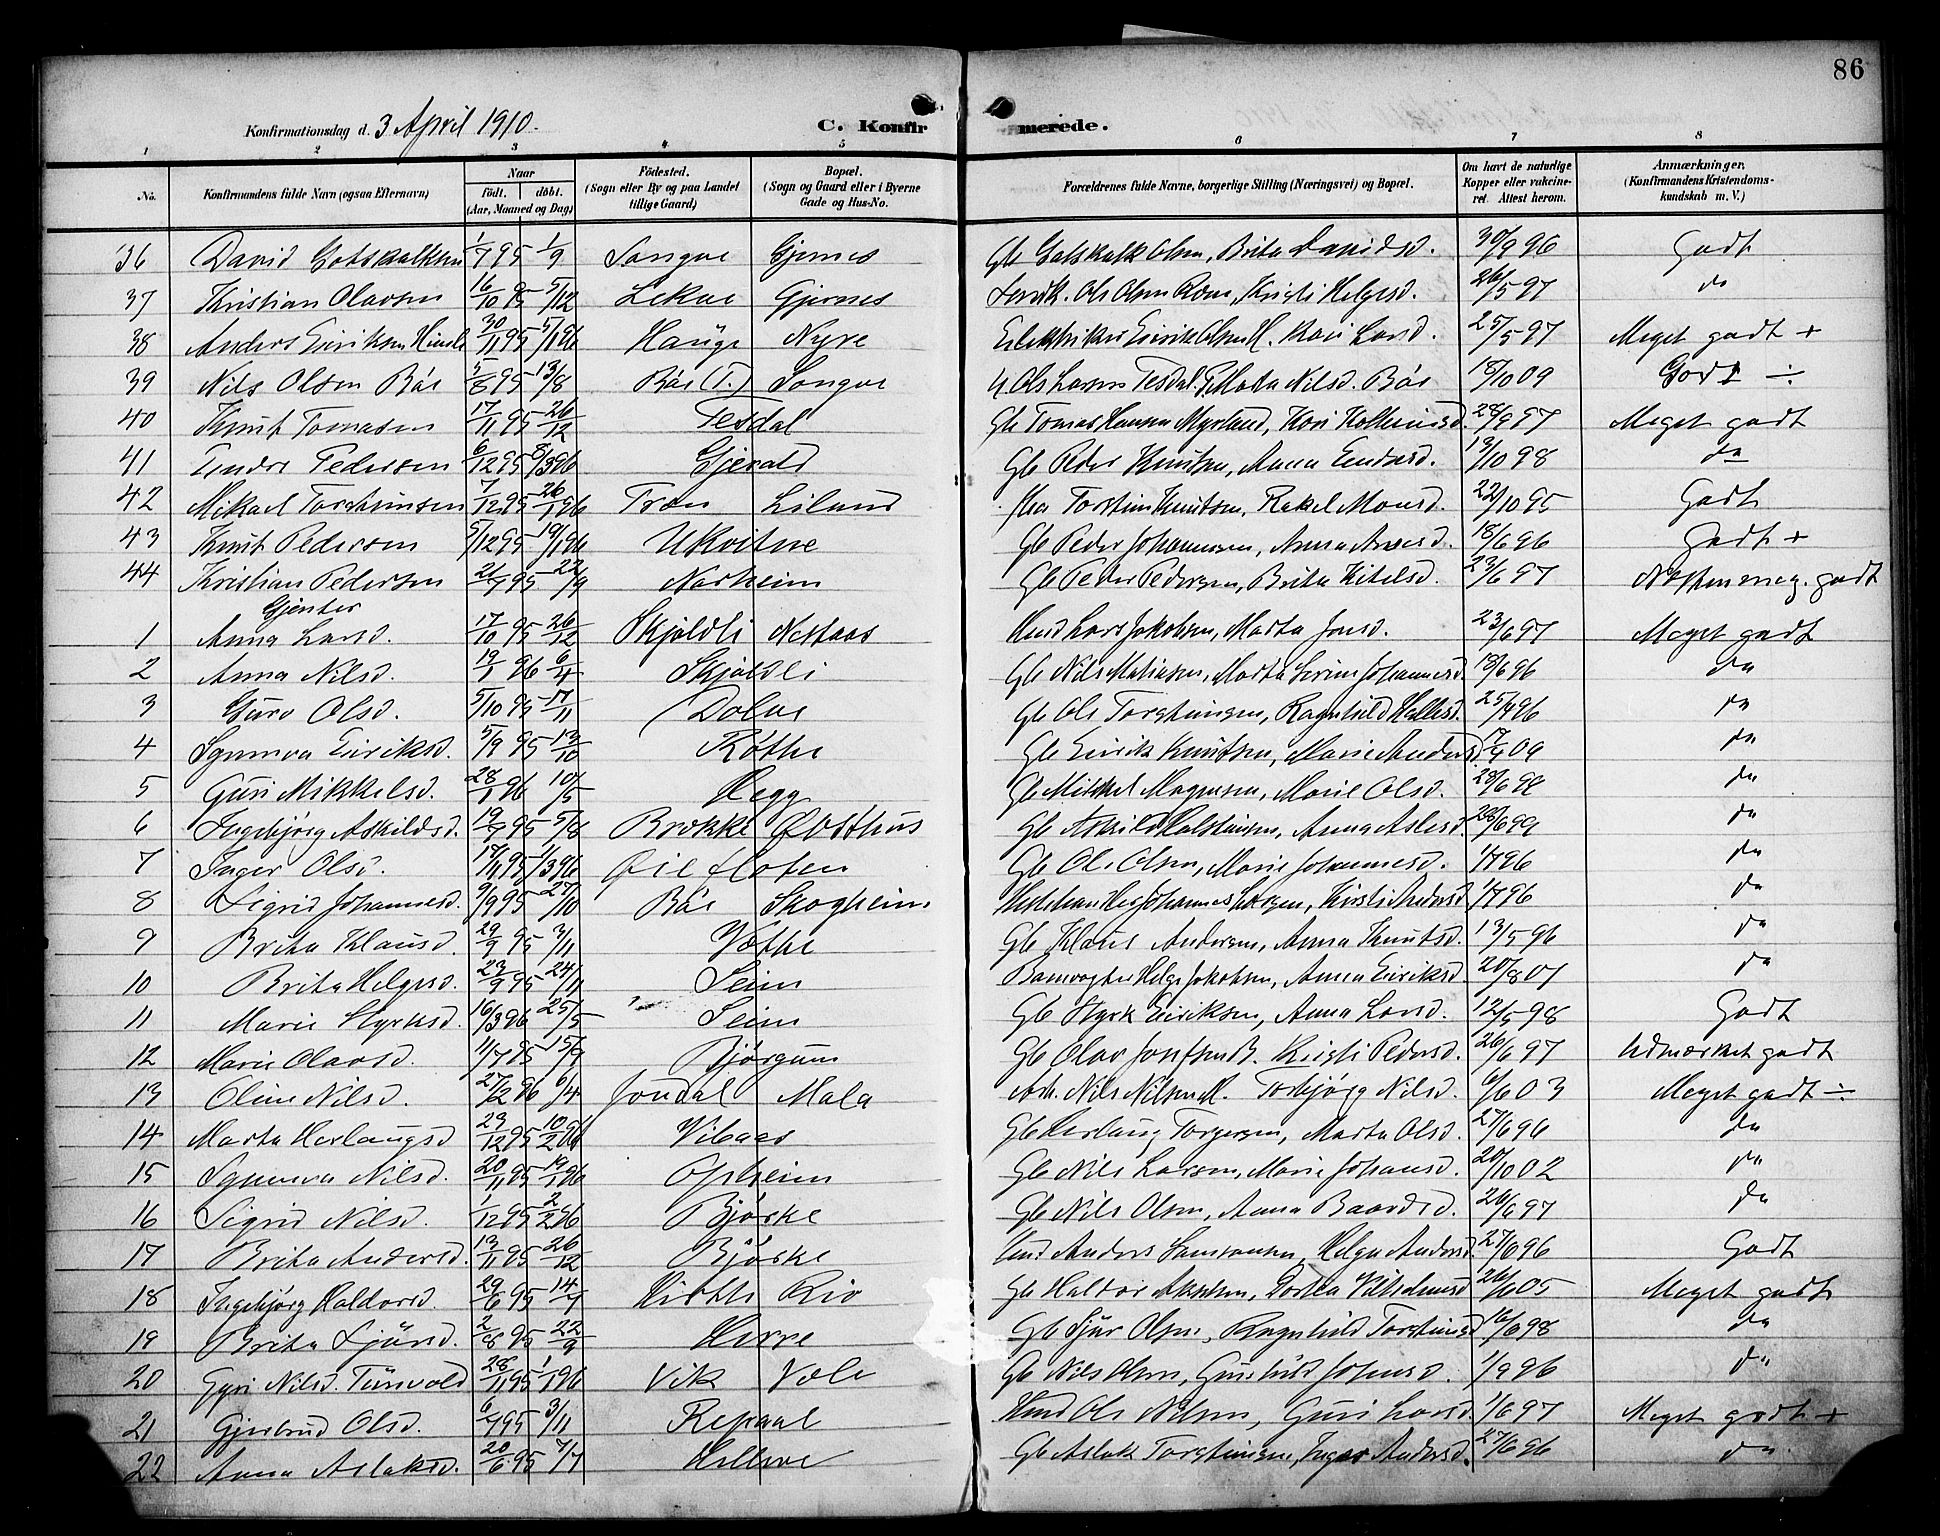 86
Konfirmationsdag d. 3 April 1910. C. Konfirmerede.
1 2 3 4 5 6 7 8
No. Konfirmandens fulde Navn (ogsaa Efternavn) Naar födt. döbt. (Aar, Maaned og Dag) Födested. (Sogn eller By og paa Landet tillige Gaard) Bopæl. (Sogn og Gaard eller i Byerne Gade og Hus-No. Forældrenes fulde Navne, borgerlige Stilling (Næringsvei) og Bopæl. Om havt de naturlige Kopper eller vakcineret. Attest herom. Anmærkninger. (Konfirmandens Kristendomskundskab m. V.)
36 David Gotskalksen 1/7 95 1/9 Songve Gjernes Gb Gotskalk Olsen, Brita Davidsd. 30/9 96 Godt
37 Kristian Olavsen 16/10 95 5/12 Lekve Gjernes Ole Olsen Kristi Helgesd. 26/5 97 do
38 Anders Eiriksen Himle 30/11 95 5/1 96 Hauge Nyre Eirik Olsen H. Kari Larsd. 25/5 97 Meget godt +
39 Nils Olsen Bøe 5/5 95 13/8 Bøe (T.) Songve Ols Larsen Tesdal. Marta Nilsd. Bøe 18/10 09 Godt ÷
40 Knut Tomasen 17/11 95 26/12 Tesdal Gb Tomas Hansen 28/9 97 Meget godt
41 Endre Pedersen 6/12 95 8/3 96 Gjerald Gb Peder Knutsen, Anna Endresd. 13/10 98 do
42 Mikael Torsteinsen 7/12 95 26/1 96 Troen Liland Torstein Knutsen, Rakel Monsd. 22/10 95 Godt
43 Knut Pedersen 5/12 95 19/1 96 Ukvitne Gb Peder Johannesen, Anna Arnesd. 18/6 96 Godt +
44 Kristian Pedersen 21/7 95 22/9 Norheim Gb Peder Pedersen, Brita Kitelsd. 23/6 97 Næsten meg. godt
Gjenter
1 Anna Larsd. 17/10 95 26/12 Skjoldli Nestaas Husd Lars Jakobsen, Marta Jonsd. 23/6 97 Meget godt
2 Anna Nilsd. 19/1 96 6/4 Skjoldli Gb Nils Matiasen, Marta Serine Johannesd. 18/6 96 do
3 Guro Olsd. 5/10 95 17/11 Dolve Gb Ole Torsteinsen, Ragnhild Hellesd. 25/9 96 do
4 Synneva Eiriksd. 5/9 95 13/10 Røthe Gb Eirik Knutsen, Marie Andersd. 17/9 09 do
5 Guri Mikkelsd. 28/1 96 10/5 Hegg Gb Mikkel Magnesen, Marie Olsd. 28/6 98 do
6 Ingebjørg Askildsd. 19/7 95 5/8 Brekke Østhus Gb Askild Halsteinsen, Anna Aslesd. 28/6 99 do
7 Inger Olsd. 17/11 95 1/3 96 Øie Floten Gb Ole Olsen, Marie Johannesd. 1/7 96 do
8 Sigrid Johannesd. 9/9 95 27/10 Bøe Skogheim Johannes Larsen, Kirsti Andersd. 1/7 96 do
9 Brita Klausd. 29/9 95 3/11 Vethe Gb Klaus Andersen, Anna Knutsd. 13/5 96 do
10 Brita Helgesd. 23/9 95 24/11 Seim Banevogter Helge Jakobsen, Anna Eiriksd. 20/8 01 do
11 Marie Styrksd. 16/3 96 25/5 Seim Gb Styrk Eiriksen, Anna Larsd. 12/5 98 Godt
12 Marie Olavsd. 11/7 95 15/9 Bjørgum Gb Olav Josefsen B. Kristi Pedersd. 26/6 97 Udmærket godt
13 Oline Nilsd. 27/2 96 6/4 Jondal Mala Arb. Nils Nilsen M. Torbjørg Nilsd. 6/6 03 Meget godt ÷
14 Marta Herlaugsd 23/12 95 10/2 96 Vibaas Gb Herlaug Torgersen, Marta Olsd. 27/6 96 do
15 Synneva Nilsd. 20/11 95 19/1 96 Opheim Gb Nils Larsen, Marie Johansd. 20/10 02 do
16 Sigrid Nilsd. 1/12 95 2/2 96 Bjørke Gb Nils Olsen, Anna Baardsd. 26/6 97 do
17 Brita Andersd. 13/11 95 26/12 Bjørke Husd Anders Samsonsen, Helga Andersd. 27/6 96 Godt
18 Ingebjørg Haldorsd. 29/6 95 14/7 Rio Gb Haldor Dortea 26/6 05 Meget godt
19 Brita Sjursd. 2/8 95 22/9 Herre Gb Sjur Olsen, Ragnhild Torsteinsd 16/6 98 do
20 Gyri Nilsd. Tunvold 28/11 95 1/1 96 Vik Vole Gb Nils Olsen, Gunhild Johansd. 1/9 96 do
21 Gjertrud Olsd. 6/9 95 3/11 Repaal Husd Ole Nilsen, Guri Larsd 1/6 97 Meget godt +
22 Anna Aslaksd. 20/6 95 7/7 Helleve Gb Aslak Torsteinsen, Inger Andersd. 27/6 96 do